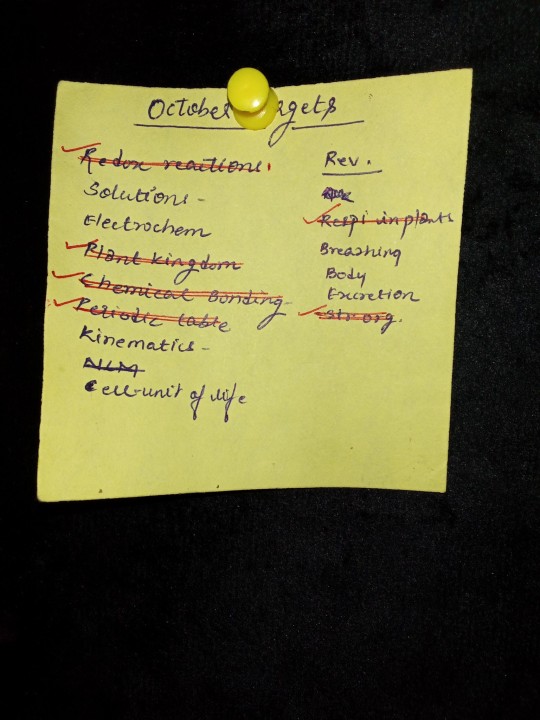 October rgets
Redox reactions.
Solutions -
Electrochem
Plant kingdom
Chemical Bonding -
Periodic table
Kinematics -
NLM
Cell-unit of life
Rev.
Respi in plants
Breathing
Body
Excretion
Str org.